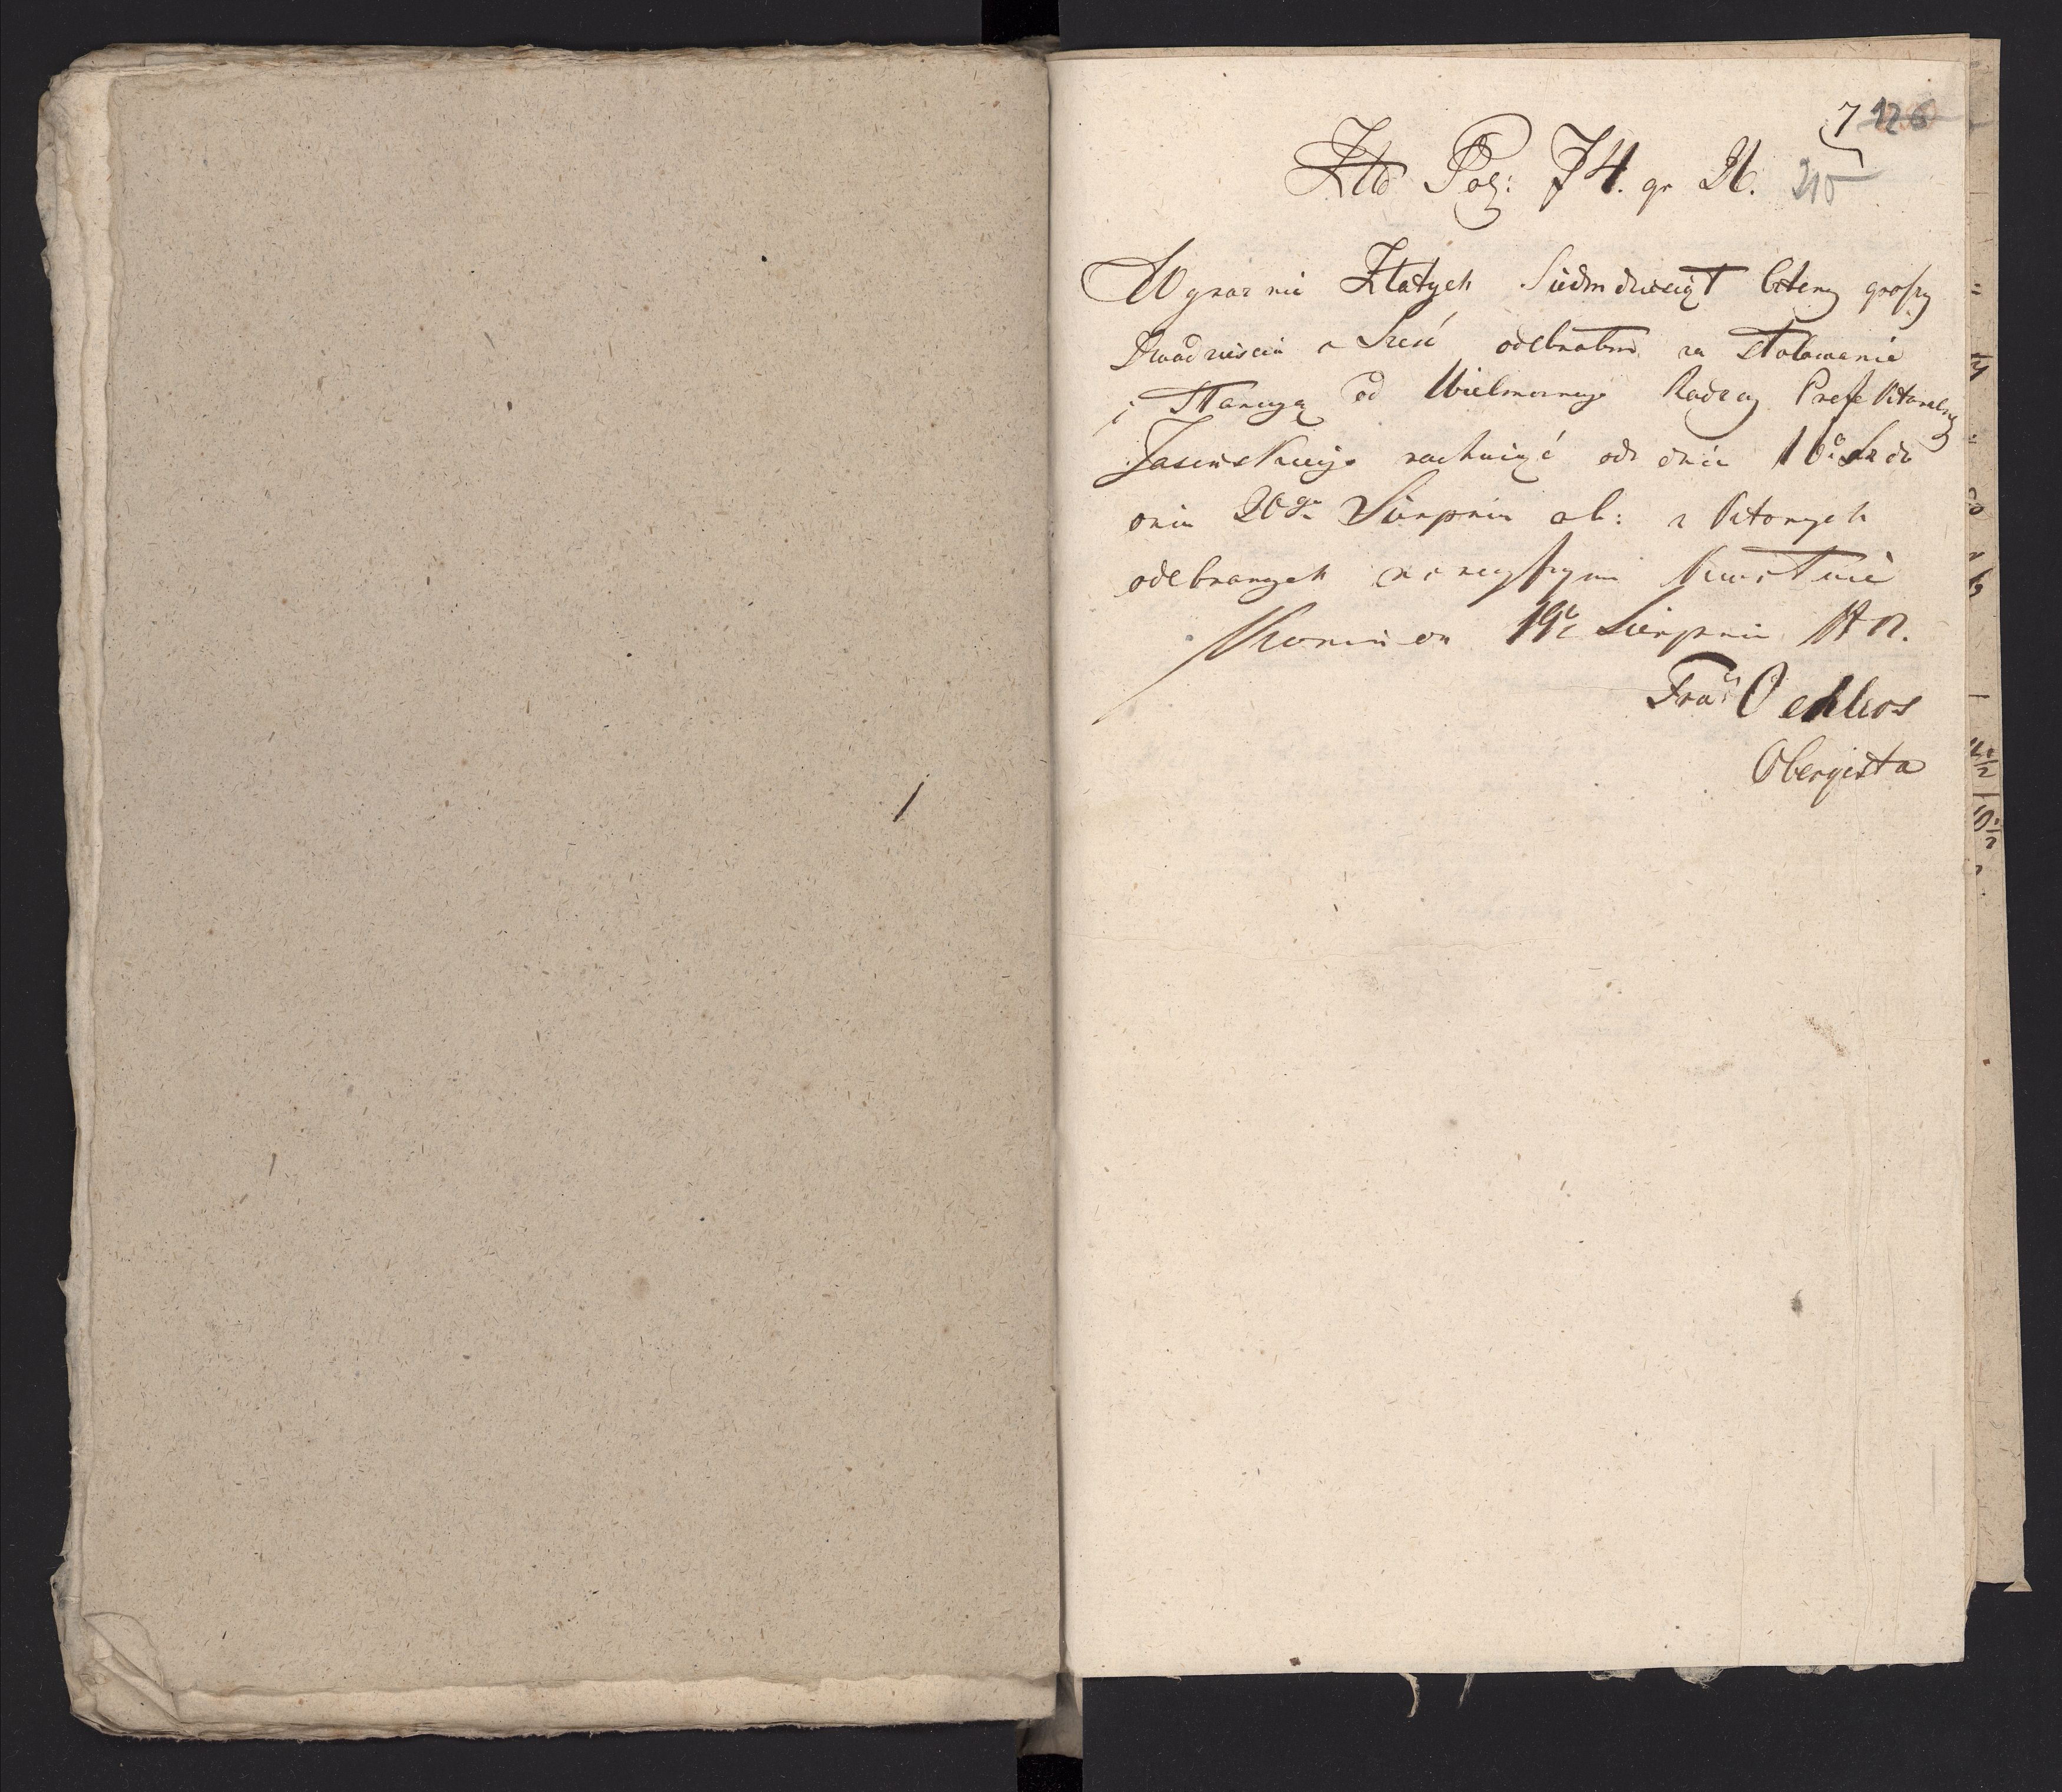 7 126
Złt Pol: 74. gr 26. 215
Wyraznie Złotych Siedmdziesiąt Cztery groszy
Dwadziescia i Sześć odebrałem za Stołowanie
i Stancyą od Wielmoznego Radzcy Prefekturalny
Jasińskiego rachuiąć od dnia 16º do
dnia 20go Sierpnia ab: z ktorych
odebranych ninieyszym kwituie
Konin dn 19º Sierpnia
Fran: Oehlers
Oberzista